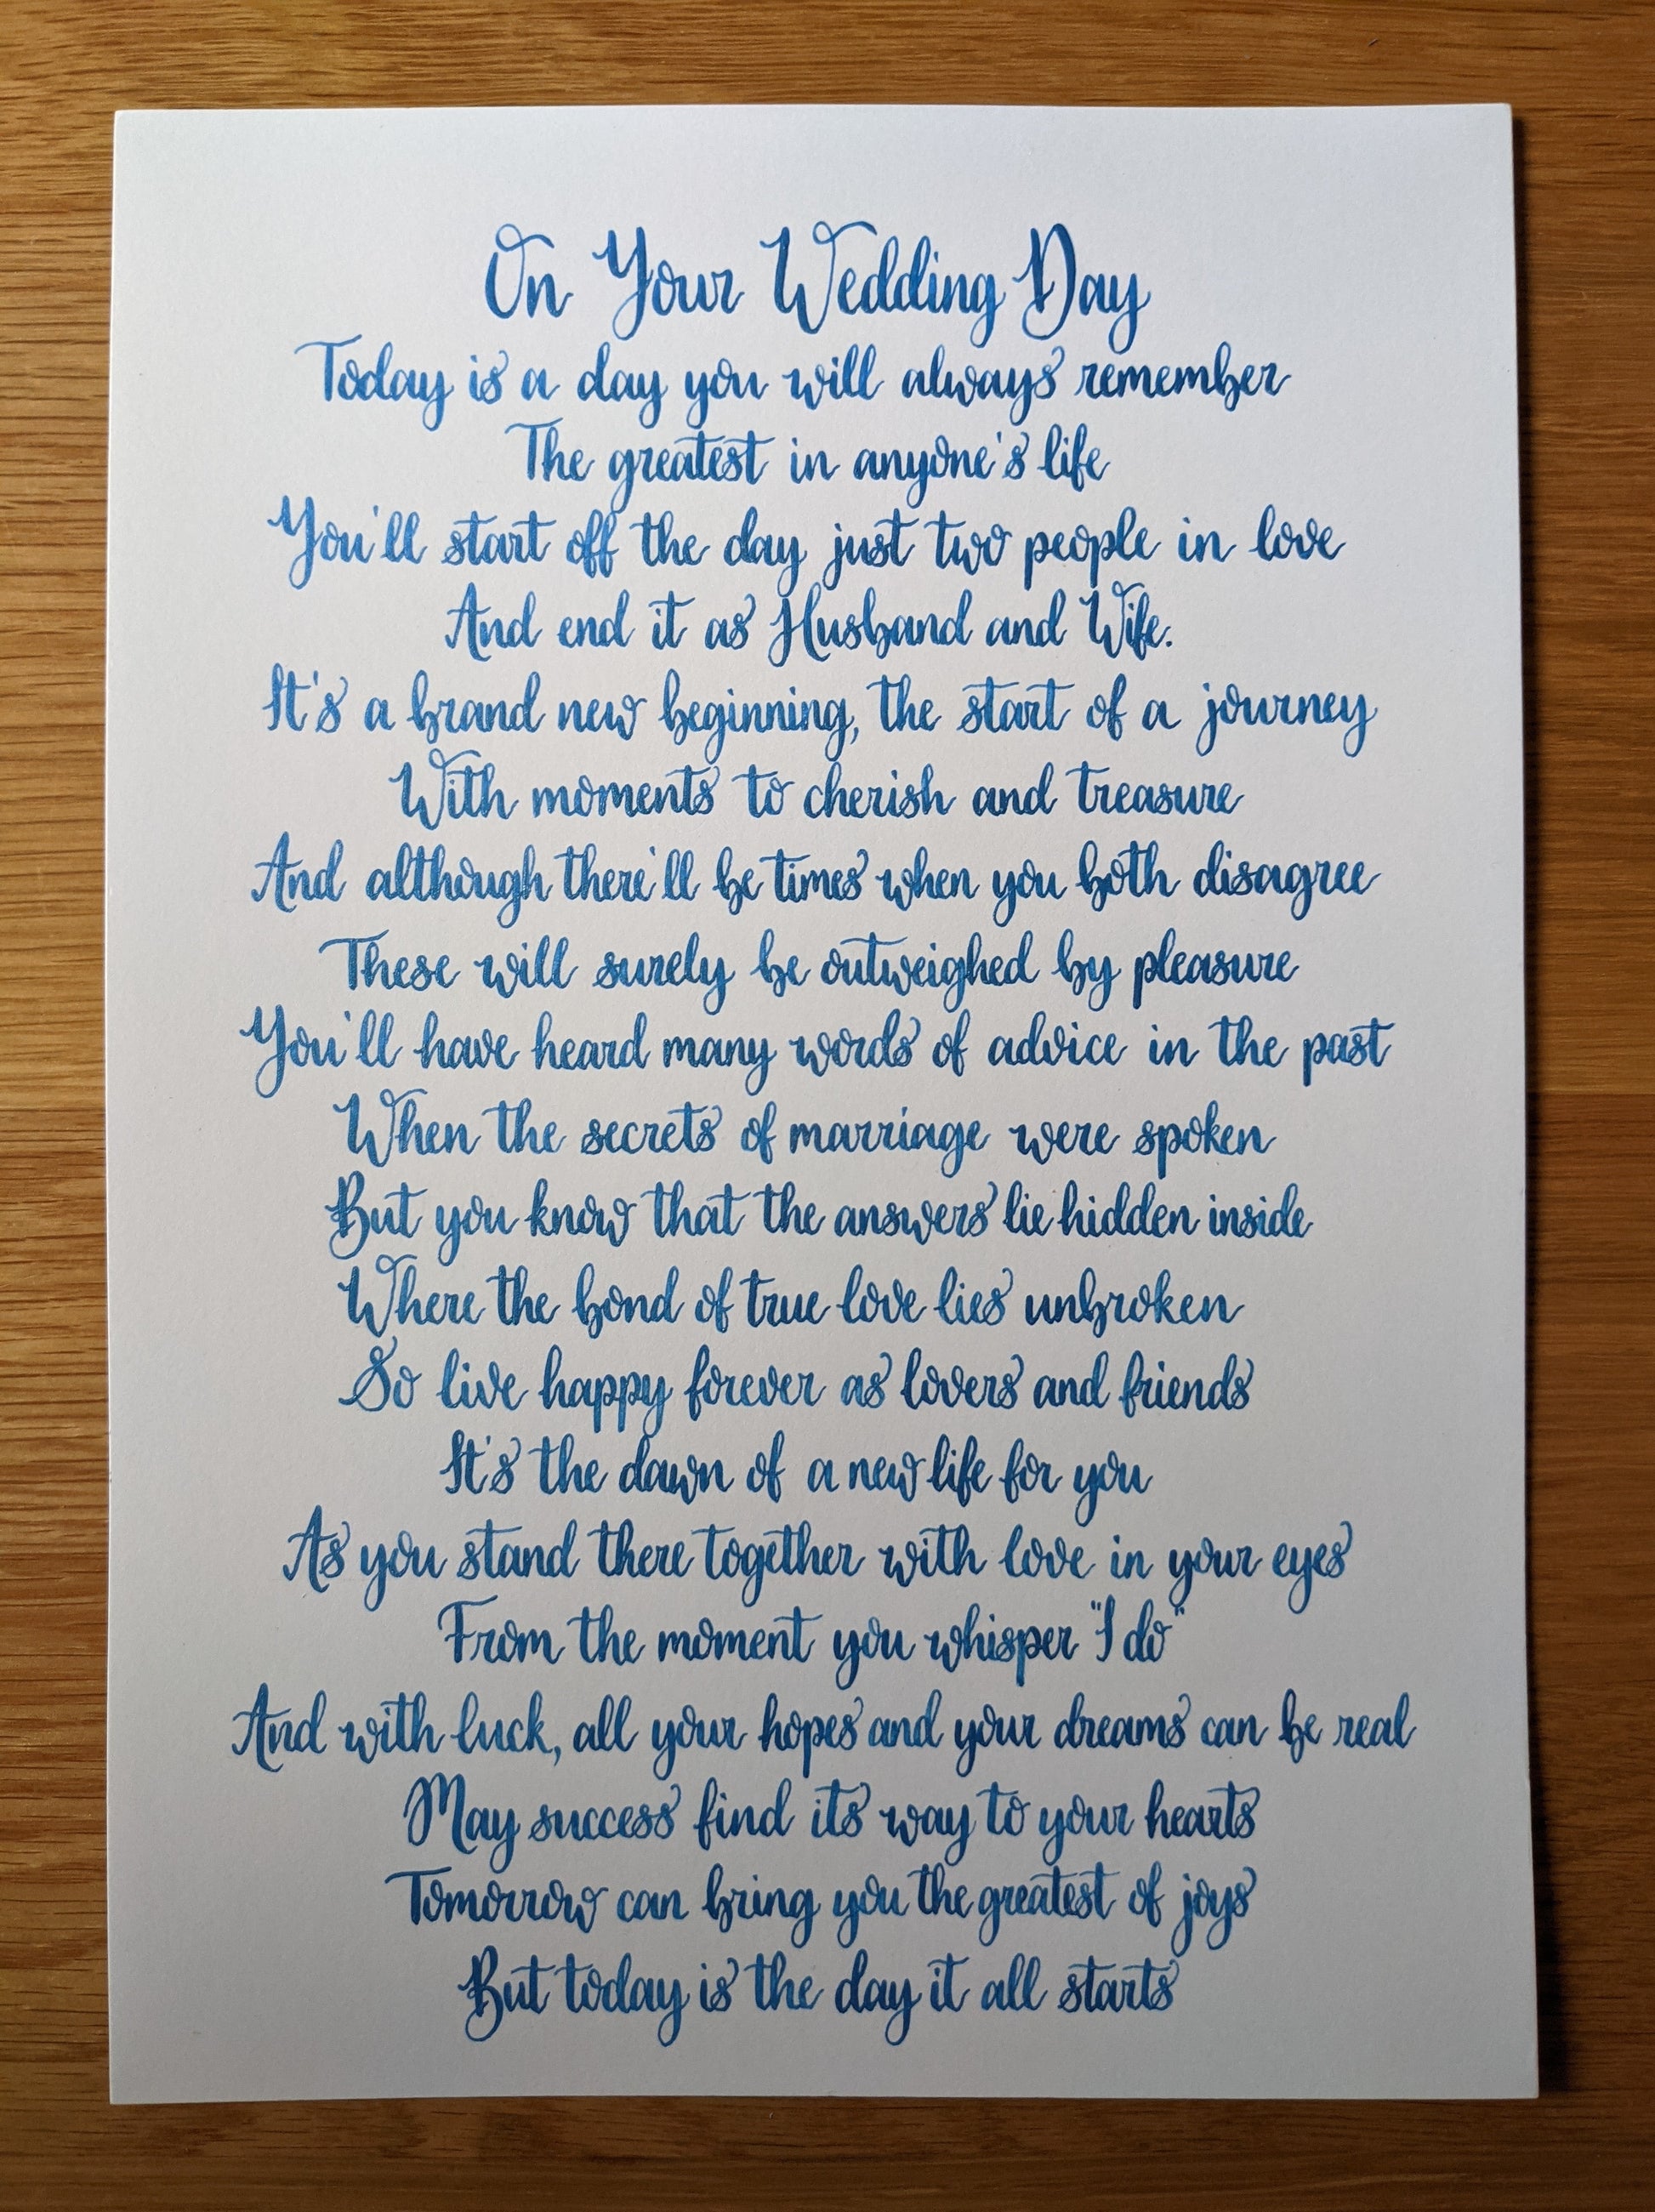 On Your Wedding Day
Today is a day you will always remember
The greatest in anyone's life
You'll start off the day just two people in love
And end it as Husband and Wife.
It's a brand new beginning, the start of a journey
With moments to cherish and treasure
And although there'll be times when you both disagree
These will surely be outweighed by pleasure
You'll have heard many words of advice in the past
When the secrets of marriage were spoken
But you know that the answers lie hidden inside
Where the bond of true love lies unbroken
So live happy forever as lovers and friends
It's the dawn of a new life for you
As you stand there together with love in your eyes
From the moment you whisper "I do"
And with luck, all your hopes and your dreams can be real
May success find its way to your hearts
Tomorrow can bring you the greatest of joys
But today is the day it all starts